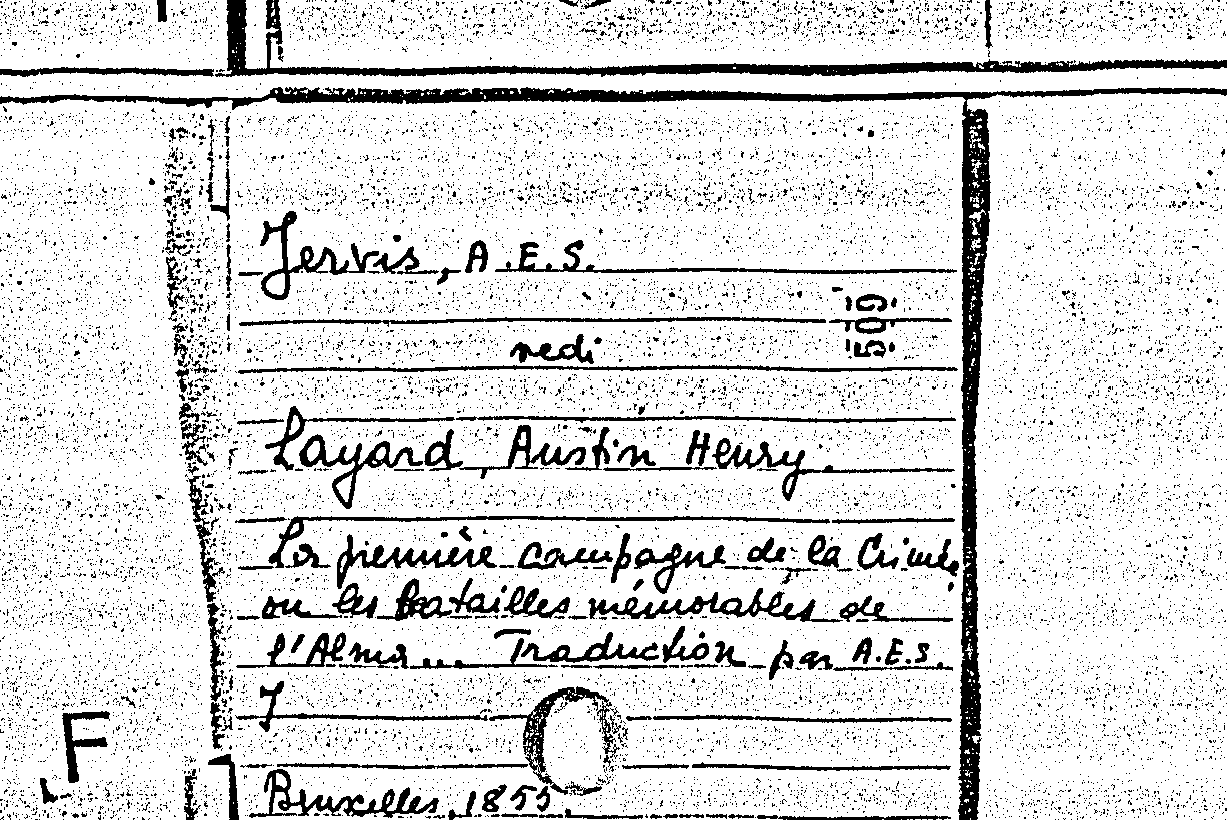 Jervis, A.E.S.
500
vedi
Layard, Austin Henry.
La première campagne de la Crimée,
ou les batailles mémorables de
l'Alma... Traduction par A.E.S.
J
F
Bruxelles, 1855.